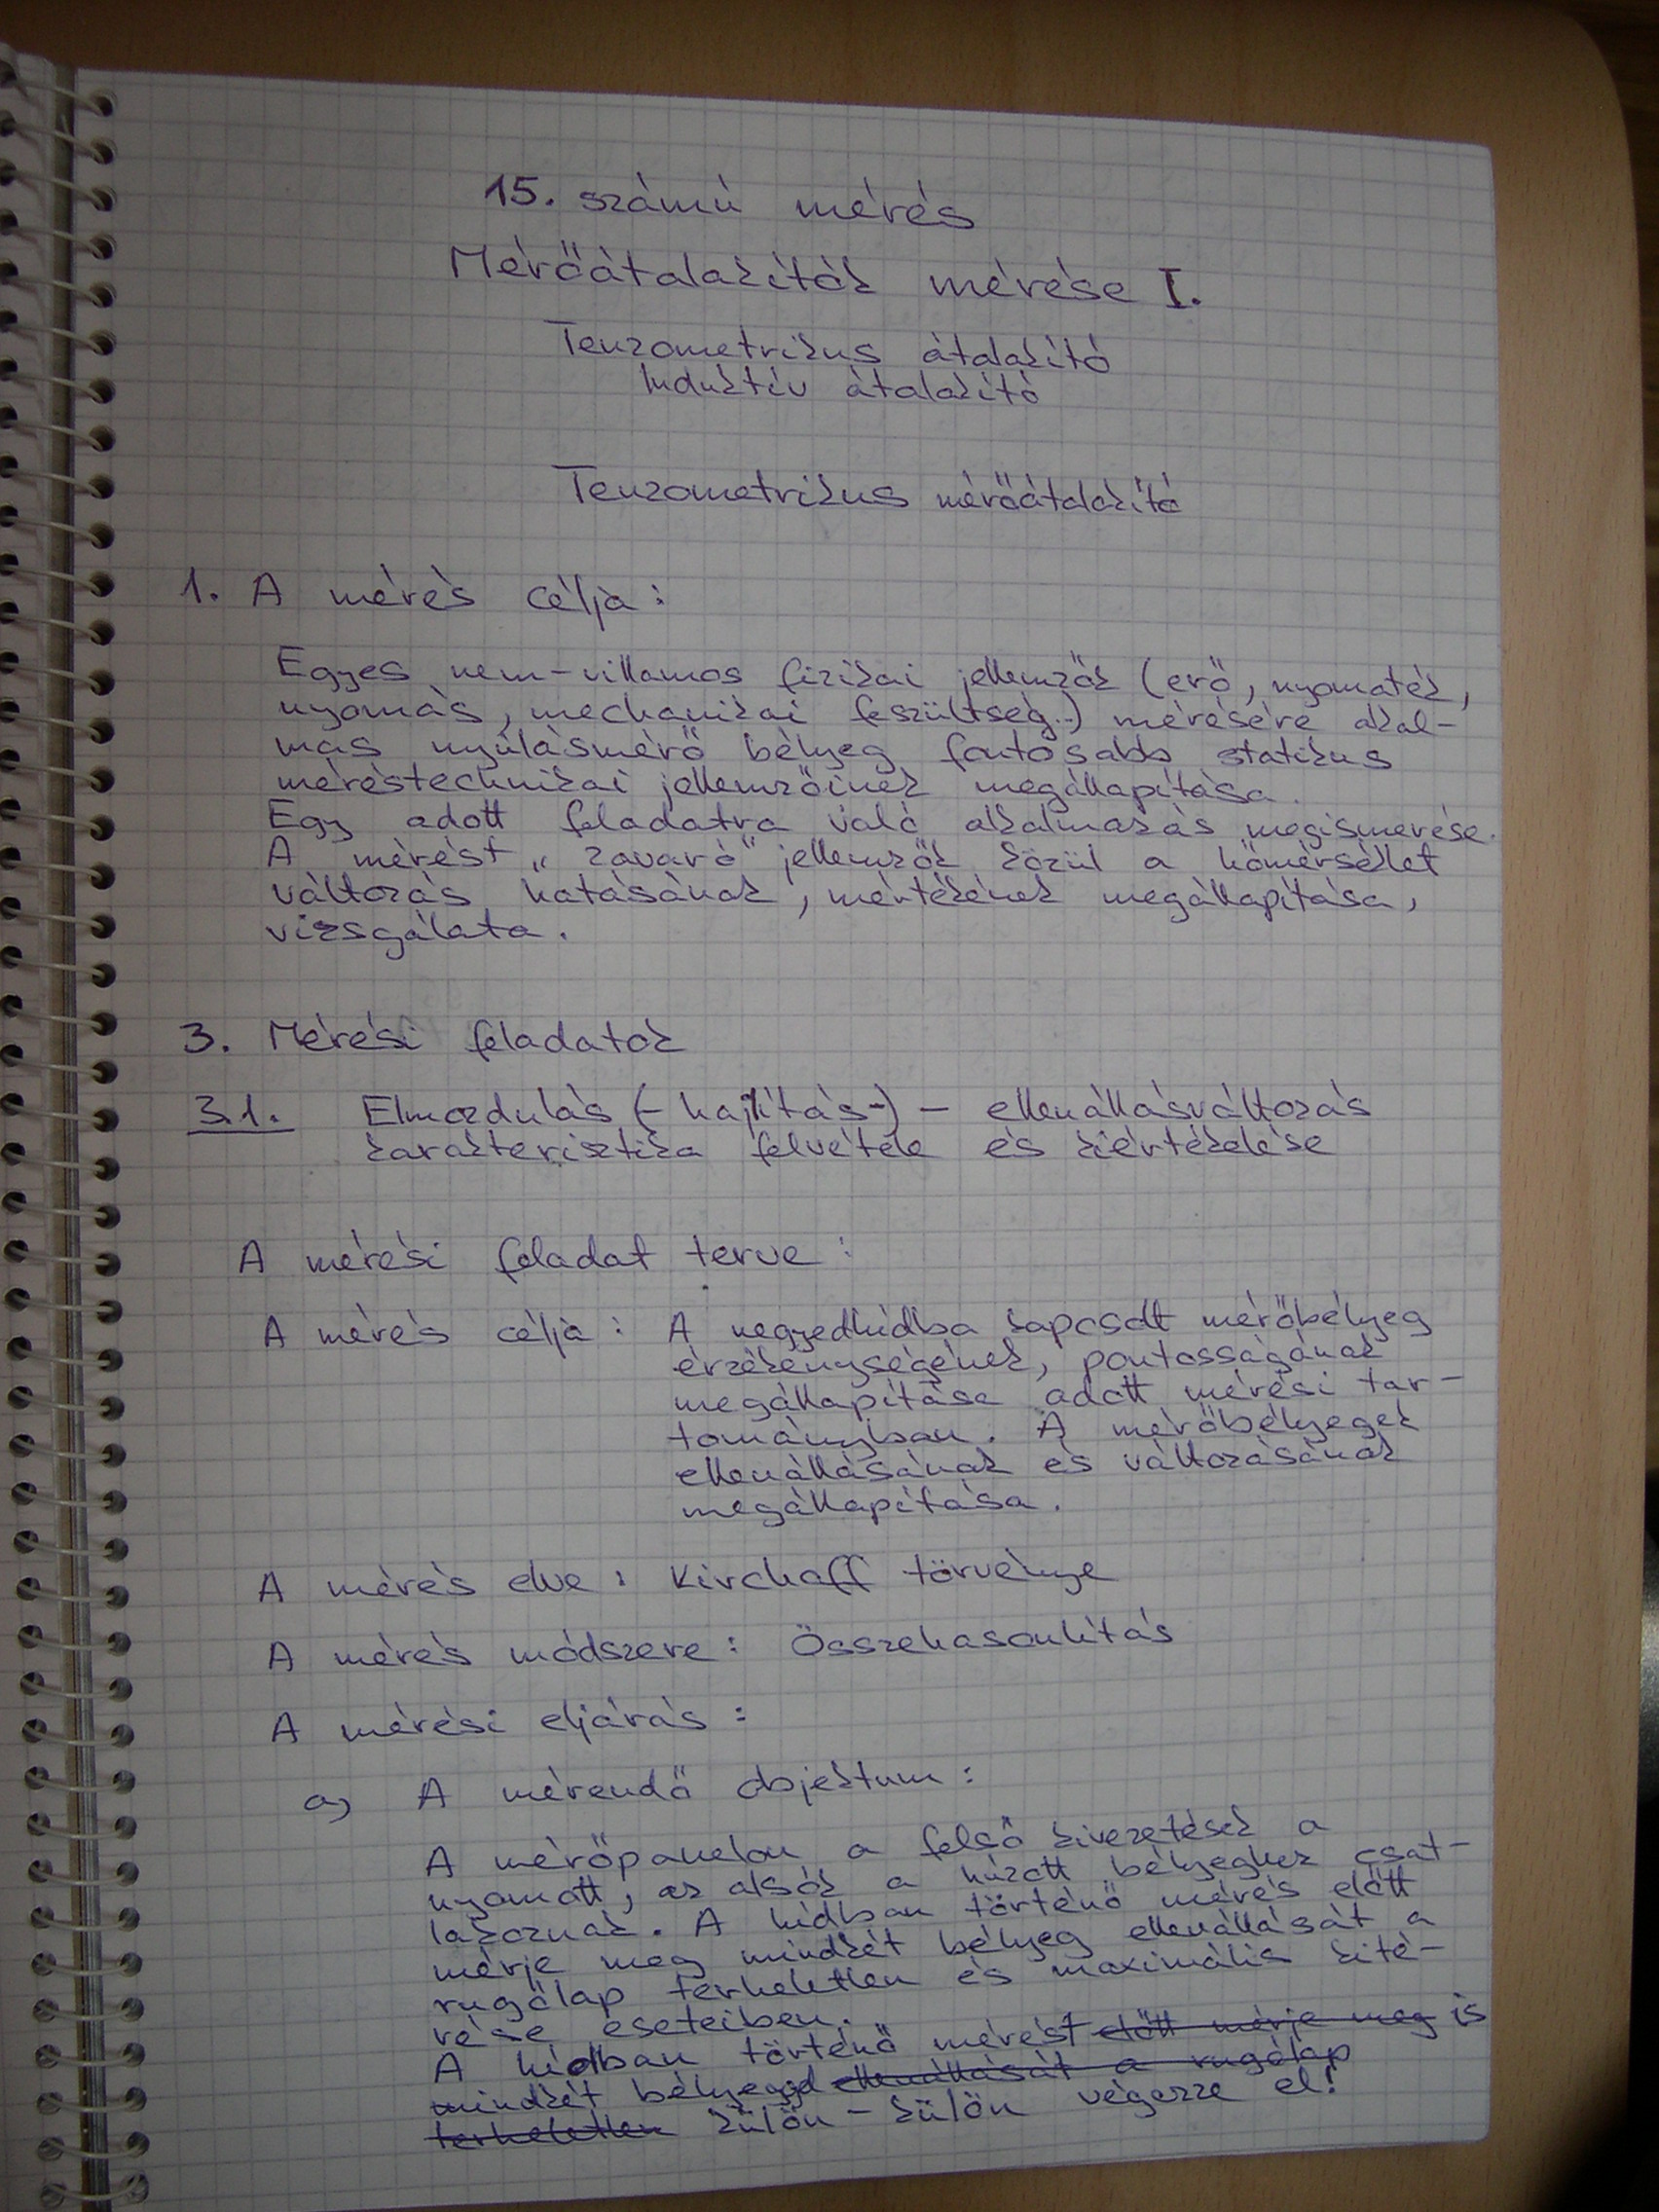 15. számú mérés
Mérőátalakítók mérése I.
Tenzometrikus átalakító
Induktív átalakító
Tenzometrikus mérőátalakító
1. A mérés célja:
Egyes nem-villamos fizikai jellemzők (erő, nyomaték,
nyomás, mechanikai feszültség..) mérésére alkal-
mas nyúlásmérő bélyeg fontosabb statikus
méréstechnikai jellemzőinek megállapítása.
Egy adott feladatra való alkalmazás megismerése.
A mérést „zavaró" jellemzők közül a hőmérséklet
változás hatásának, mértékének megállapítása,
vizsgálata.
3. Mérési feladatok
3.1. Elmozdulás (-hajlítás-) - ellenállásváltozás
karakterisztika felvétele és kiértékelése
A mérési feladat terve:
A mérés célja: A negyedhídba kapcsolt mérőbélyeg
érzékenységének, pontosságának
megállapítása adott mérési tar-
tományban. A mérőbélyegek
ellenállásának és változásának
megállapítása.
A mérés elve: Kirchoff törvénye
A mérés módszere: Összehasonlítás
A mérési eljárás:
a) A mérendő objektum:
A mérőpanelon a felső kivezetések a
nyomott, az alsók a húzott bélyeghez csat-
lakoznak. A hídban történő mérés előtt
mérje meg mindkét bélyeg ellenállását a
rugólap terheletlen és maximális kité-
rése eseteiben.
A hídban történő mérést előtt mérje meg is
mindkét bélyeggel ellenállását a rugólap
terheletlen külön-külön végezze el!